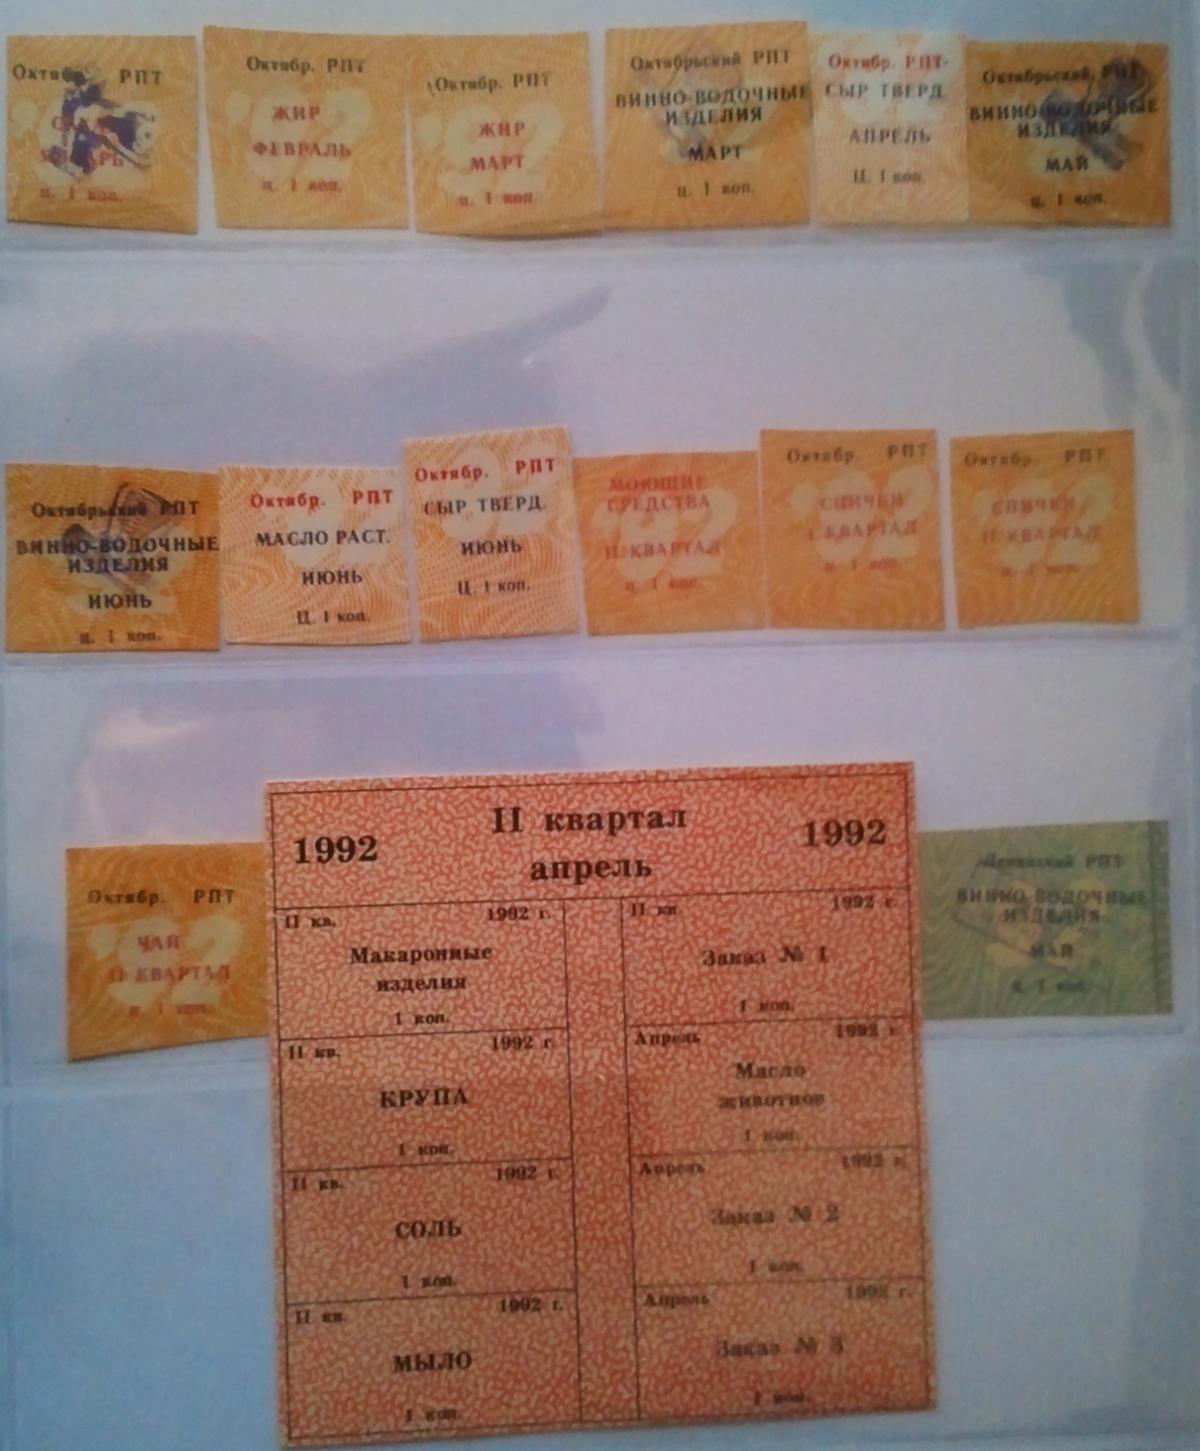 Октябр. РПТ
ЯНВАРЬ
ц. 1 коп.
Октябр. РПТ
ЖИР
ФЕВРАЛЬ
ц. 1 коп.
Октябр. РПТ
ЖИР
МАРТ
ц. 1 коп.
Октябрьский РПТ
ВИННО-ВОДОЧНЫЕ
ИЗДЕЛИЯ
МАРТ
ц. 1 коп.
Октябр. РПТ
СЫР ТВЕРД.
АПРЕЛЬ
Ц. 1 коп.
Октябрьский РПТ
ВИННО-ВОДОЧНЫЕ
ИЗДЕЛИЯ
МАЙ
ц. 1 коп.
Октябрьский РПТ
ВИННО-ВОДОЧНЫЕ
ИЗДЕЛИЯ
ИЮНЬ
ц. 1 коп.
Октябр. РПТ
МАСЛО РАСТ.
ИЮНЬ
Ц. 1 коп.
Октябр. РПТ
СЫР ТВЕРД.
ИЮНЬ
Ц. 1 коп.
МОЮЩИЕ
СРЕДСТВА
II КВАРТАЛ
ц. 1 коп.
Октябр. РПТ
СПИЧКИ
I КВАРТАЛ
ц. 1 коп.
Октябр. РПТ
СПИЧКИ
II КВАРТАЛ
ц. 1 коп.
Октябр. РПТ
ЧАЙ
II КВАРТАЛ
ц. 1 коп.
1992 II квартал 1992
апрель
II кв. 1992 г.
Макаронные
изделия
1 коп.
II кв. 1992 г.
КРУПА
1 коп.
II кв. 1992 г.
СОЛЬ
1 коп.
II кв. 1992 г.
МЫЛО
1 коп.
II кв. 1992 г.
Заказ № 1
1 коп.
Апрель 1992 г.
Масло
животное
1 коп.
Апрель 1992 г.
Заказ № 2
1 коп.
Апрель 1992 г.
Заказ № 3
1 коп.
Ленинский РПТ
ВИННО-ВОДОЧНЫЕ
ИЗДЕЛИЯ
МАЙ
ц. 1 коп.